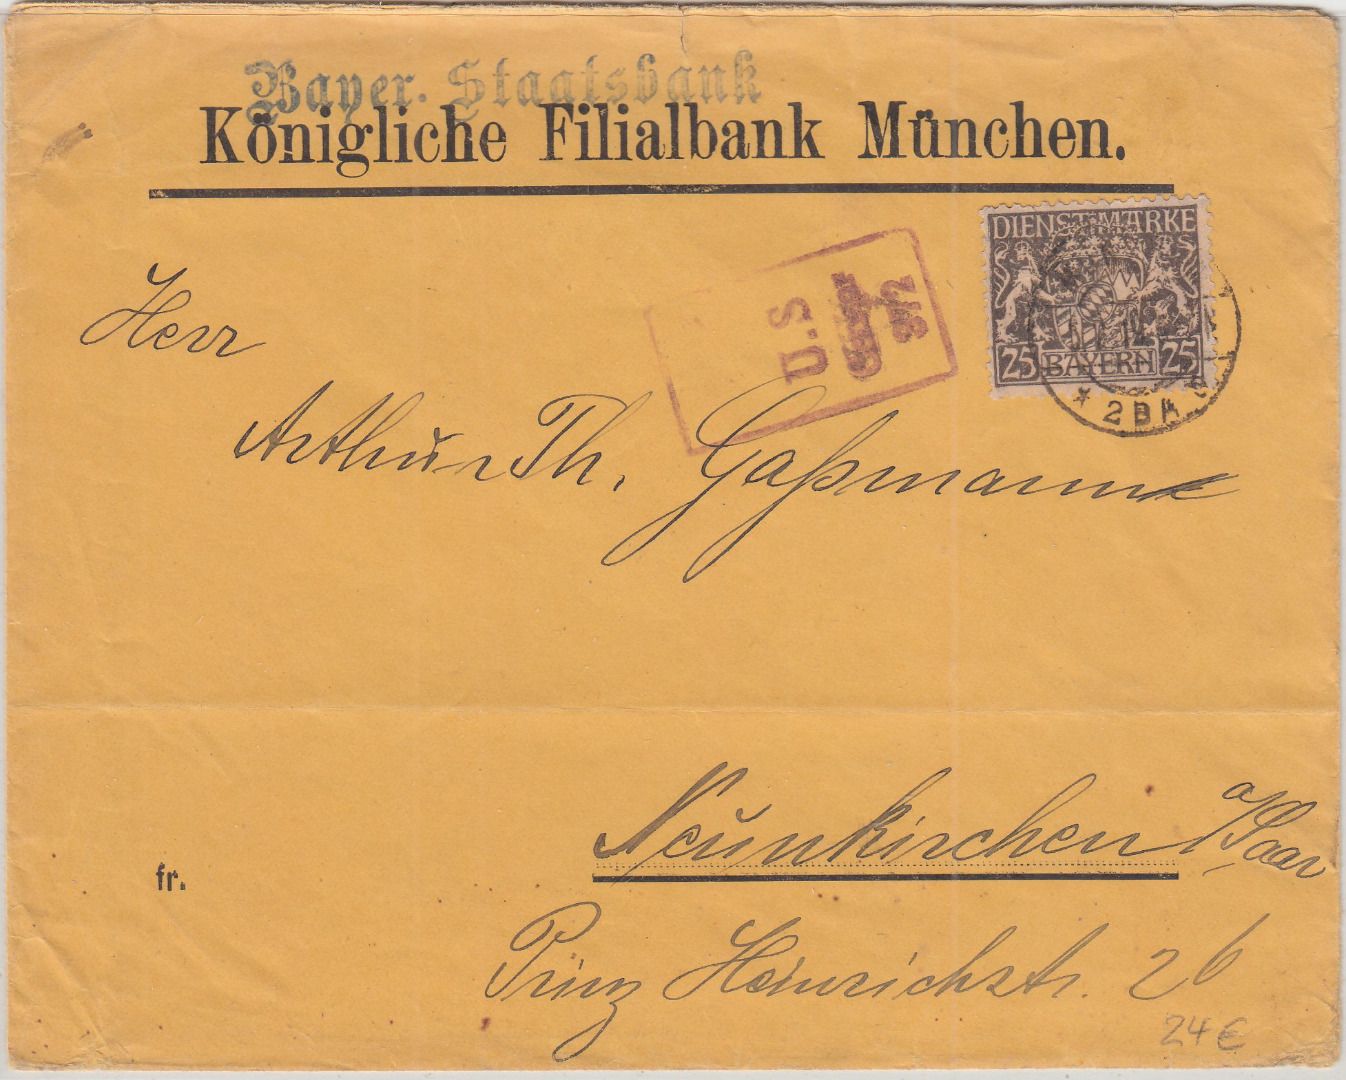 Bayer. Staatsbank
Königliche Filialbank München.
DIENSTMARKE
25 BAYERN 25
* 2BA
U.S
Herr
Arthur Th. Gaßmann
Neunkirchen a/Saar
fr.
Prinz Heinrichstr. 26
24 €